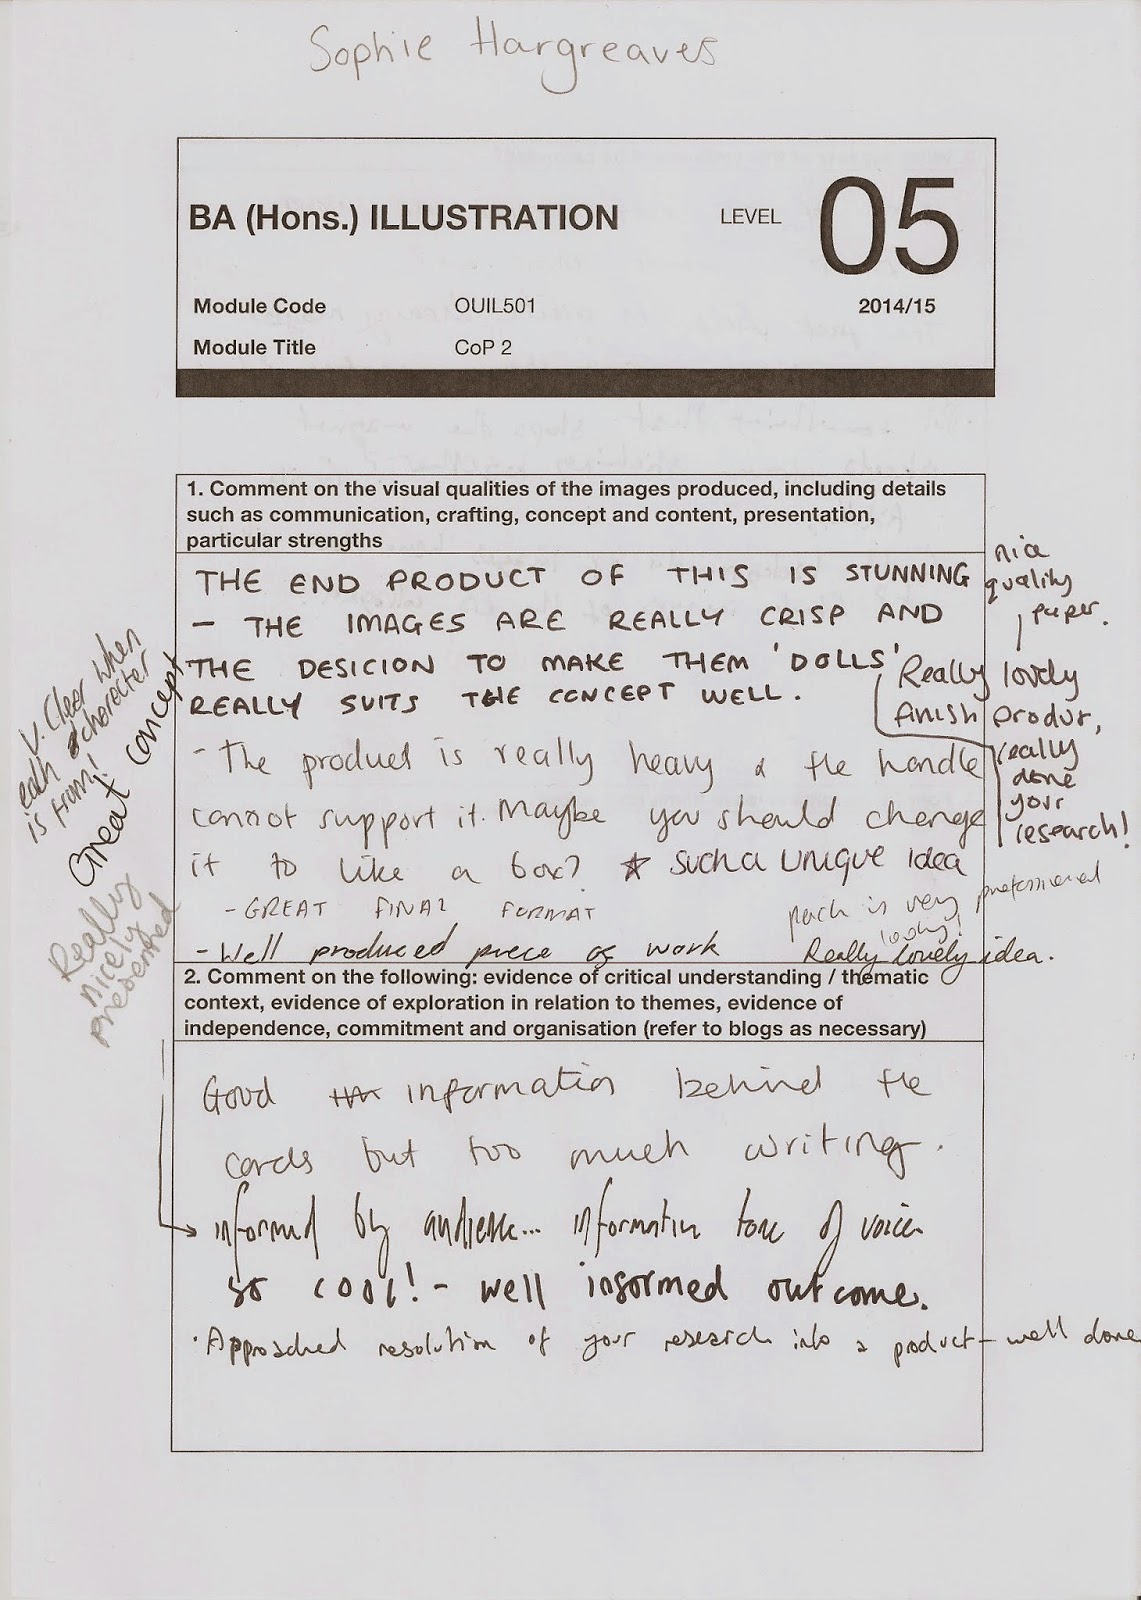 Sophie Hargreaves
BA (Hons.) ILLUSTRATION
LEVEL 05
Module Code OUIL501 2014/15
Module Title CoP 2
1. Comment on the visual qualities of the images produced, including details
such as communication, crafting, concept and content, presentation,
particular strengths
THE END PRODUCT OF THIS IS STUNNING
- THE IMAGES ARE REALLY CRISP AND
THE DESICION TO MAKE THEM 'DOLLS'
REALLY SUITS THE CONCEPT WELL.
nice
quality
paper.
Really lovely
finish produr,
really
done
your
research!
- The product is really heavy & the handle
cannot support it. Maybe you should change
it to like a box? * such a unique idea
- GREAT FINAL FORMAT
pack is very professional
looking!
- Well produced piece of work
Really lovely idea.
V. Clear when
each character
is from!
Great concept
Really
nicely
presented
2. Comment on the following: evidence of critical understanding / thematic
context, evidence of exploration in relation to themes, evidence of
independence, commitment and organisation (refer to blogs as necessary)
Good information behind the
cards but too much writing.
informed by audience... information tone of voice
so cool! - well informed outcome.
· Approached resolution of your research into a product - well done